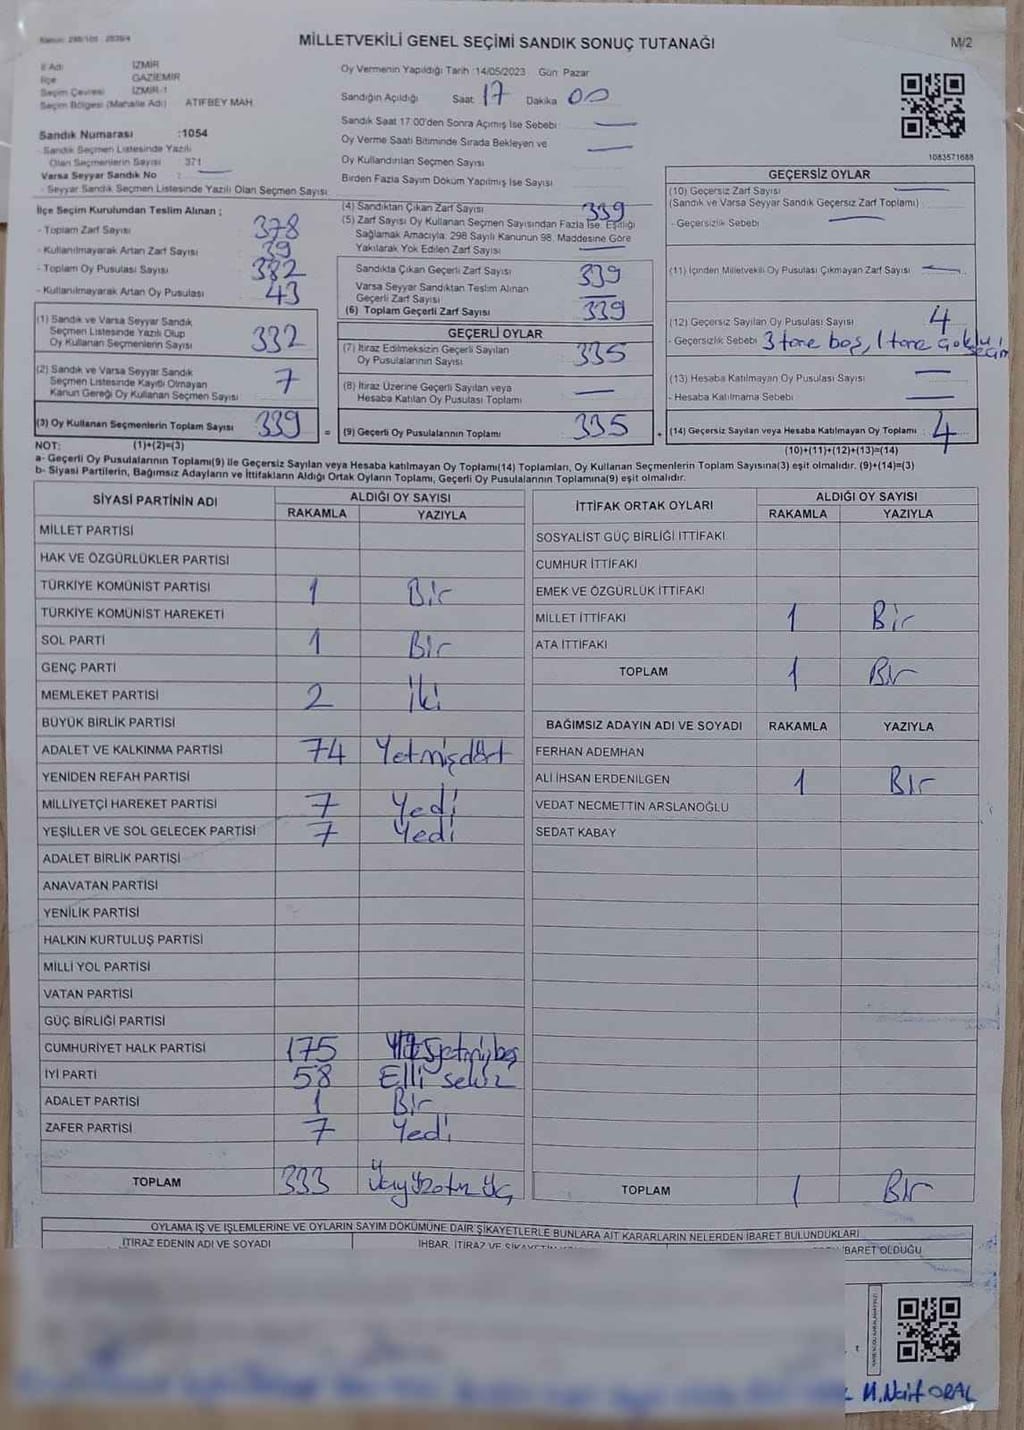 MİLLETVEKİLİ GENEL SEÇİMİ SANDIK SONUÇ TUTANAĞI
M/2
İl Adı İZMİR
İlçe GAZİEMİR
Seçim Çevresi İZMİR-1
Seçim Bölgesi (Mahalle Adı) ATIFBEY MAH.
Sandık Numarası :1054
Sandık Seçmen Listesinde Yazılı
Olan Seçmenlerin Sayısı 371
Varsa Seyyar Sandık No :
- Seyyar Sandık Seçmen Listesinde Yazılı Olan Seçmen Sayısı
Oy Vermenin Yapıldığı Tarih :14/05/2023 Gün Pazar
Sandığın Açıldığı Saat 17 Dakika 00
Sandık Saat 17.00'den Sonra Açmış İse Sebebi
Oy Verme Saati Bitiminde Sırada Bekleyen ve
Oy Kullandırılan Seçmen Sayısı
Birden Fazla Sayım Döküm Yapılmış İse Sayısı
1083571688
İlçe Seçim Kurulundan Teslim Alınan ;
- Toplam Zarf Sayısı 378
- Kullanılmayarak Artan Zarf Sayısı 39
- Toplam Oy Pusulası Sayısı 382
- Kullanılmayarak Artan Oy Pusulası 43
(1) Sandık ve Varsa Seyyar Sandık
Seçmen Listesinde Yazılı Olup
Oy Kullanan Seçmenlerin Sayısı 332
(2) Sandık ve Varsa Seyyar Sandık
Seçmen Listesinde Kayıtlı Olmayan
Kanun Gereği Oy Kullanan Seçmen Sayısı 7
(3) Oy Kullanan Seçmenlerin Toplam Sayısı 339
(4) Sandıktan Çıkan Zarf Sayısı 339
(5) Zarf Sayısı Oy Kullanan Seçmen Sayısından Fazla İse, Eşitliği
Sağlamak Amacıyla; 298 Sayılı Kanunun 98. Maddesine Göre
Yakılarak Yok Edilen Zarf Sayısı
Sandıkta Çıkan Geçerli Zarf Sayısı 339
Varsa Seyyar Sandıktan Teslim Alınan
Geçerli Zarf Sayısı
(6) Toplam Geçerli Zarf Sayısı 339
GEÇERLİ OYLAR
(7) İtiraz Edilmeksizin Geçerli Sayılan
Oy Pusulalarının Sayısı 335
(8) İtiraz Üzerine Geçerli Sayılan veya
Hesaba Katılan Oy Pusulası Toplamı
= (9) Geçerli Oy Pusulalarının Toplamı 335
GEÇERSİZ OYLAR
(10) Geçersiz Zarf Sayısı
(Sandık ve Varsa Seyyar Sandık Geçersiz Zarf Toplamı)
- Geçersizlik Sebebi
(11) İçinden Milletvekili Oy Pusulası Çıkmayan Zarf Sayısı
(12) Geçersiz Sayılan Oy Pusulası Sayısı 4
- Geçersizlik Sebebi 3 tane boş, 1 tane çoklu seçim
(13) Hesaba Katılmayan Oy Pusulası Sayısı
- Hesaba Katılmama Sebebi
(14) Geçersiz Sayılan veya Hesaba Katılmayan Oy Toplamı 4
NOT: (1)+(2)=(3)
(10)+(11)+(12)+(13)=(14)
a- Geçerli Oy Pusulalarının Toplamı(9) ile Geçersiz Sayılan veya Hesaba katılmayan Oy Toplamı(14) Toplamları, Oy Kullanan Seçmenlerin Toplam Sayısına(3) eşit olmalıdır. (9)+(14)=(3)
b- Siyasi Partilerin, Bağımsız Adayların ve İttifakların Aldığı Ortak Oyların Toplamı, Geçerli Oy Pusulalarının Toplamına(9) eşit olmalıdır.
SİYASİ PARTİNİN ADI ALDIĞI OY SAYISI
RAKAMLA YAZIYLA
MİLLET PARTİSİ
HAK VE ÖZGÜRLÜKLER PARTİSİ
TÜRKİYE KOMÜNİST PARTİSİ 1 Bir
TÜRKİYE KOMÜNİST HAREKETİ
SOL PARTİ 1 Bir
GENÇ PARTİ
MEMLEKET PARTİSİ 2 İki
BÜYÜK BİRLİK PARTİSİ
ADALET VE KALKINMA PARTİSİ 74 Yetmişdört
YENİDEN REFAH PARTİSİ
MİLLİYETÇİ HAREKET PARTİSİ 7 Yedi
YEŞİLLER VE SOL GELECEK PARTİSİ 7 Yedi
ADALET BİRLİK PARTİSİ
ANAVATAN PARTİSİ
YENİLİK PARTİSİ
HALKIN KURTULUŞ PARTİSİ
MİLLİ YOL PARTİSİ
VATAN PARTİSİ
GÜÇ BİRLİĞİ PARTİSİ
CUMHURİYET HALK PARTİSİ 175
İYİ PARTİ 58 Elli sekiz
ADALET PARTİSİ 1 Bir
ZAFER PARTİSİ 7 Yedi
TOPLAM 333
İTTİFAK ORTAK OYLARI ALDIĞI OY SAYISI
RAKAMLA YAZIYLA
SOSYALİST GÜÇ BİRLİĞİ İTTİFAKI
CUMHUR İTTİFAKI
EMEK VE ÖZGÜRLÜK İTTİFAKI
MİLLET İTTİFAKI 1 Bir
ATA İTTİFAKI
TOPLAM 1 Bir
BAĞIMSIZ ADAYIN ADI VE SOYADI RAKAMLA YAZIYLA
FERHAN ADEMHAN
ALİ İHSAN ERDENİLGEN 1 Bir
VEDAT NECMETTİN ARSLANOĞLU
SEDAT KABAY
TOPLAM 1 Bir
OYLAMA İŞ VE İŞLEMLERİNE VE OYLARIN SAYIM DÖKÜMÜNE DAİR ŞİKAYETLERLE BUNLARA AİT KARARLARIN NELERDEN İBARET BULUNDUKLARI
İTİRAZ EDENİN ADI VE SOYADI İHBAR, İTİRAZ VE İBARET OLDUĞU
ORAL